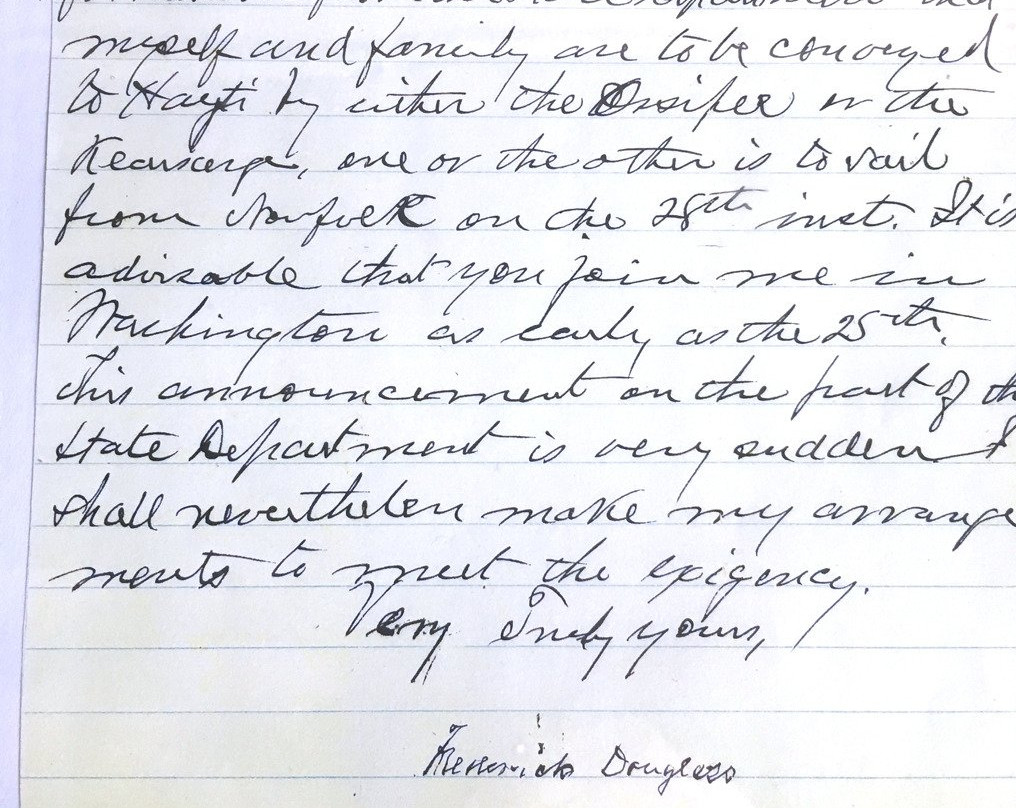 myself and family are to be conveyed
to Hayti by either the Ossipee or the
Kearsarge, one or the other is to sail
from Norfolk on the 28th inst. It is
advisable that you join me in
Washington as early as the 25th.
This announcement on the part of the
State Department is very sudden I
shall nevertheless make my arrange
ments to meet the exigency.
Very Truly yours,
Frederick Douglass